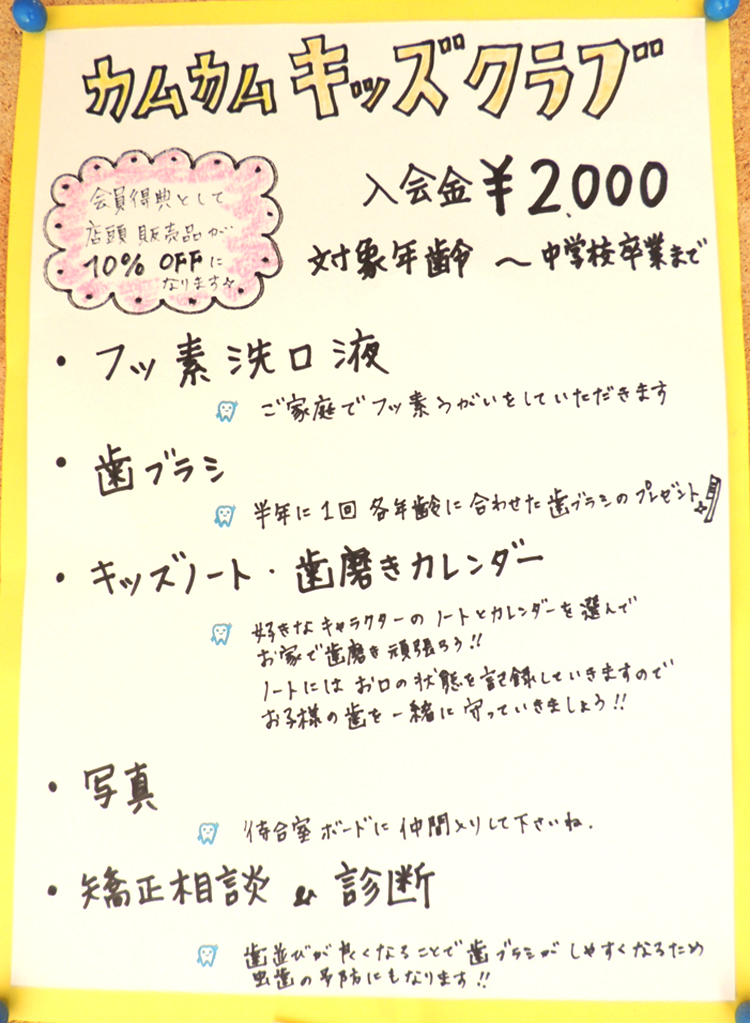 カムカムキッズクラブ
会員得典として
店頭販売品が
10% OFFに
なります☆
入会金 ¥2,000
対象年齢 〜中学校卒業まで
・フッ素洗口液
ご家庭でフッ素うがいをしていただきます
・歯ブラシ
半年に1回 各年齢に合わせた歯ブラシのプレゼント☆
・キッズノート・歯磨きカレンダー
好きなキャラクターのノートとカレンダーを選んで
お家で歯磨き頑張ろう!!
ノートにはお口の状態を記録していきますので
お子様の歯を一緒に守っていきましょう!!
・写真
待合室ボードに仲間入りして下さいね.
・矯正相談 & 診断
歯並びが良くなることで歯ブラシがしやすくなるため
虫歯の予防にもなります!!